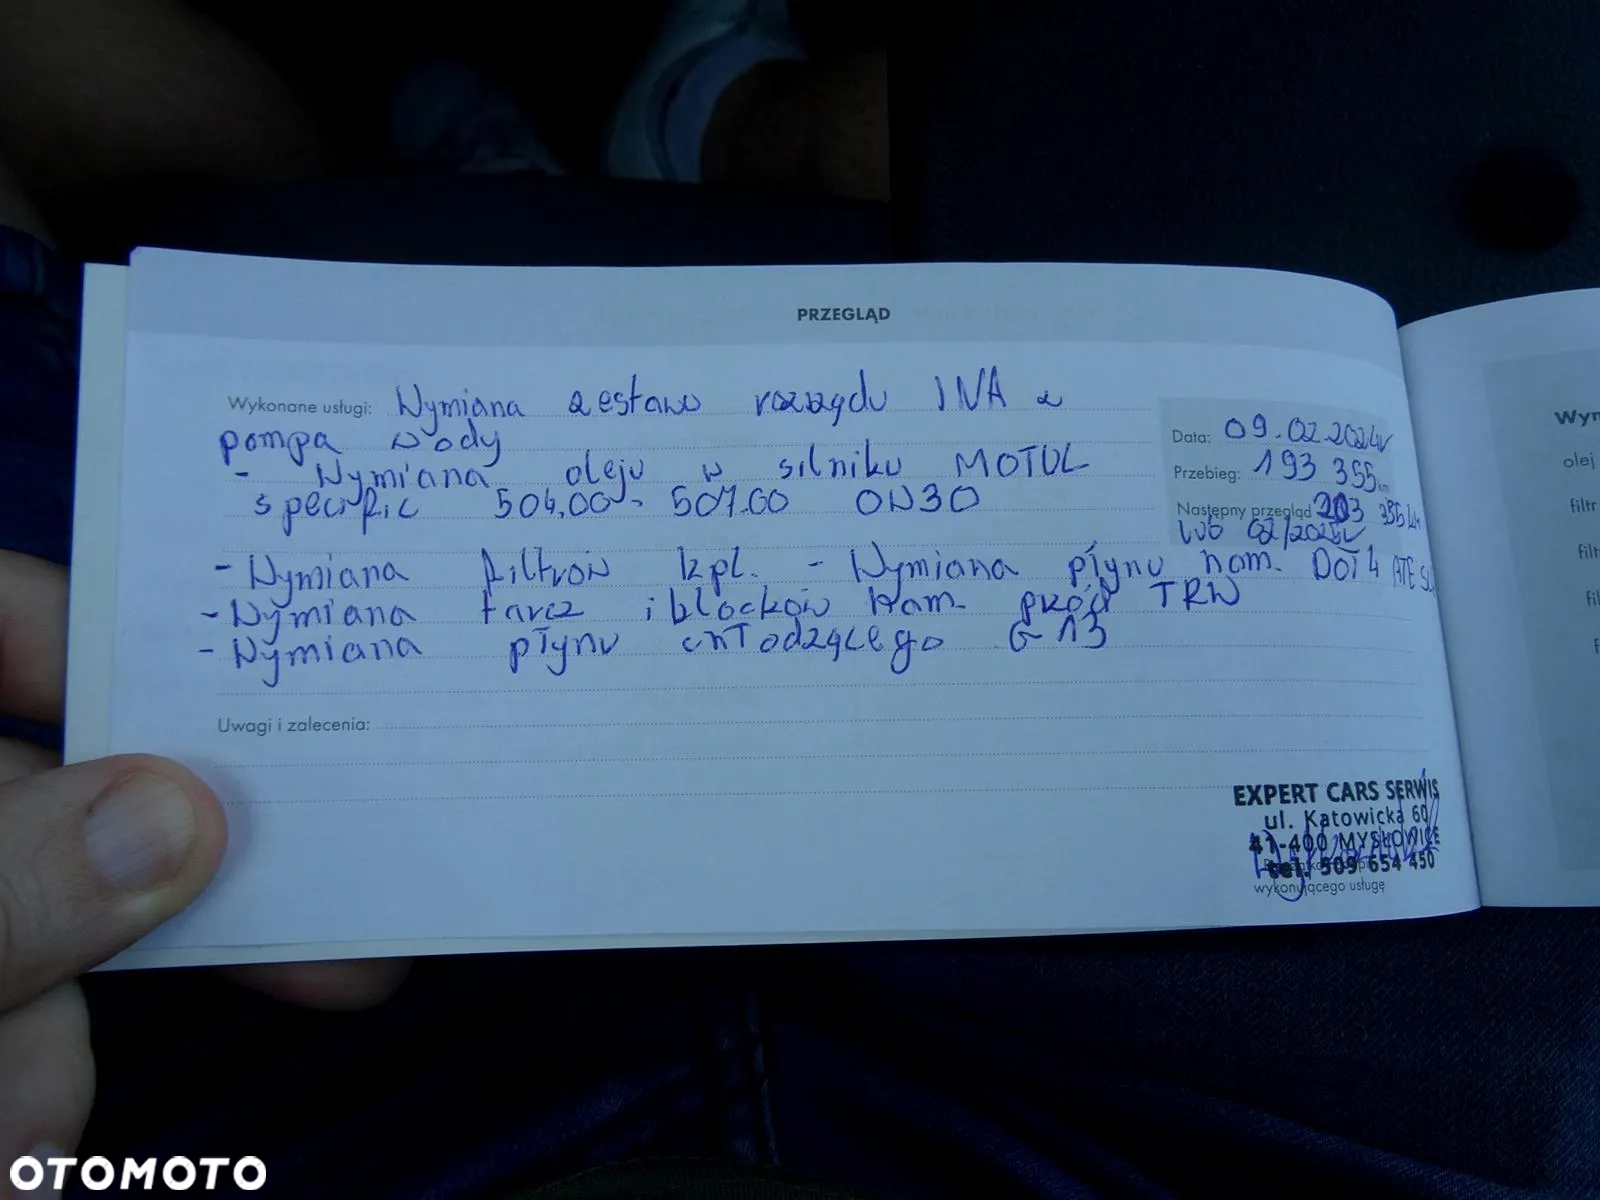 PRZEGLĄD
Wykonane usługi: Wymiana zestawu rozrządu INA z
pompą wody
- Wymiana oleju w silniku MOTUL
specific 504.00 - 507.00 0W30
- Wymiana filtrów kpl. - Wymiana płynu ham. DOT 4 ATE
- Wymiana tarcz i blocków ham. przód TRW
- Wymiana płynu chłodzącego G 13
Data: 09.02.2024r
Przebieg: 193 355 km
Następny przegląd 203 355 km
lub 02/2025r
Uwagi i zalecenia:
EXPERT CARS SERWIS
ul. Katowicka 60
41-400 MYSŁOWICE
tel. 509 654 450
wykonującego usługę
Wym
olej
filtr
filt
fil
f
OTOMOTO